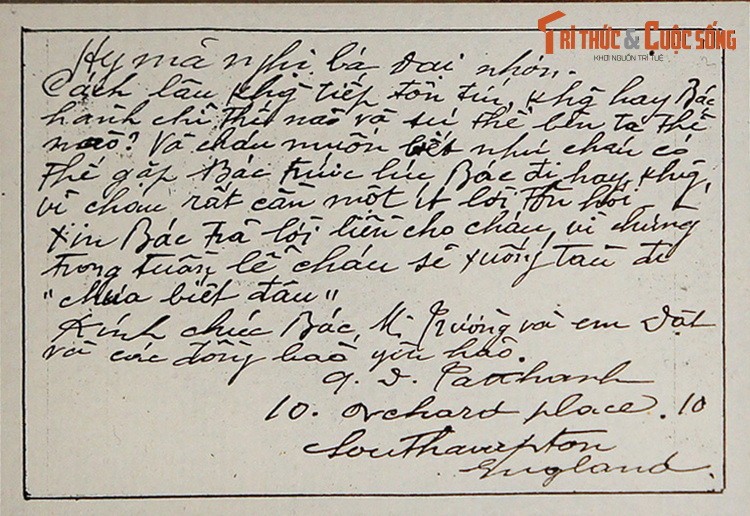 TRI THỨC & CUỘC SỐNG
KHƠI NGUỒN TRI THỨC
Hy mã nghi bá đại nhơn.
Cách lâu khg tiếp tôn tín, khg hay Bác
hành chỉ thế nào và sự thể bên ta thế
nào? Và cháu muốn biết như cháu có
thể gặp Bác trước lúc Bác đi hay khg,
vì cháu rất cần một ít lời tôn hối
Xin Bác trả lời liền cho cháu, vì chừng
trong tuần lễ cháu sẽ xuống tàu đi
"chưa biết đâu"
Kính chúc Bác, M. Trường và em Dật
và các đồng bào yên hảo.
Tatthanh
10. orchard place. 10
Southampton
England.